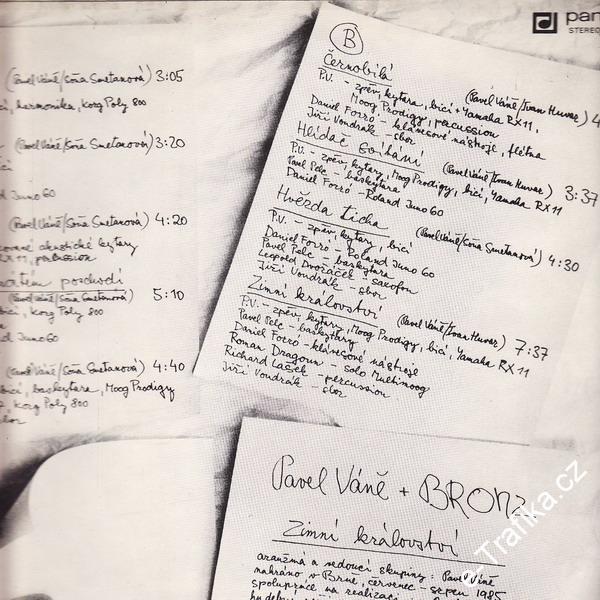 pan
STEREO
(Pavel Váně/Soňa Smetanová) 3:05
harmonika, Korg Poly 800
(Pavel Váně/Soňa Smetanová) 3:20
Juno 60
(Pavel Váně/Soňa Smetanová) 4:20
akustické kytary
RX 11, percussion
(Pavel Váně/Soňa Smetanová) 5:10
bicí, Korg Poly 800
Juno 60
(Pavel Váně/Soňa Smetanová) 4:40
baskytara, Moog Prodigy
Korg Poly 800
B
Černobílá (Pavel Váně/Ivan Huvar) 4
P.V. - zpěv, kytara, bicí + Yamaha RX 11,
Moog Prodigy, percussion
Daniel Forró - klávesové nástroje, flétna
Jiří Vondrák - sbor
Hlídač (Pavel Váně/Ivan Huvar) 3:37
P.V. - zpěv, kytary, Moog Prodigy, bicí, Yamaha RX 11
Pavel Pelc - baskytara
Daniel Forró - Roland Juno 60
Hvězda ticha (Pavel Váně/Soňa Smetanová) 4:30
P.V. - zpěv, kytary, bicí
Daniel Forró - Roland Juno 60
Pavel Pelc - baskytara
Leopold Dvořáček - saxofon
Jiří Vondrák - sbor
Zimní království (Pavel Váně/Ivan Huvar) 7:37
P.V. - zpěv, kytary, Moog Prodigy, bicí, Yamaha RX 11
Pavel Pelc - baskytary
Daniel Forró - klávesové nástroje
Roman Dragoun - solo Multimoog
Richard Lašek - percussion
Jiří Vondrák - sbor
Pavel Váně + BRONZ
Zimní království
aranžmá a vedoucí skupiny: Pavel Váně
nahráno v Brně, červenec - srpen 1985
spolupráce na realizaci
e-Trafika.cz